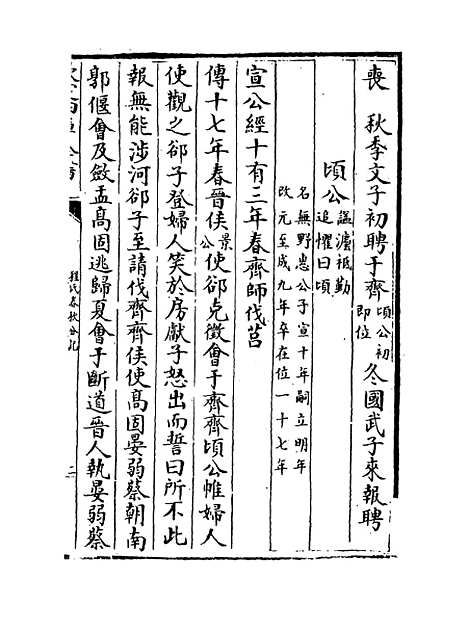 喪　秋季文子初聘于齊頃公初即位冬國武子來報聘
頃公諡瀘祗勤追懼曰頃
名無野惠公子宣十年嗣立明年
改元至成九年卒在位一十七年
宣公經十有三年春齊師伐莒
傳十七年春晉侯景公使郤克徵會于齊齊頃公帷婦人
使觀之郤子登婦人笑於房獻子怒出而誓曰所不此
報無能涉河郤子至請伐齊齊侯使高固晏弱蔡朝南
郭偃會及斂盂高固逃歸夏會于斷道晉人執晏弱蔡
程氏春秋分記
二